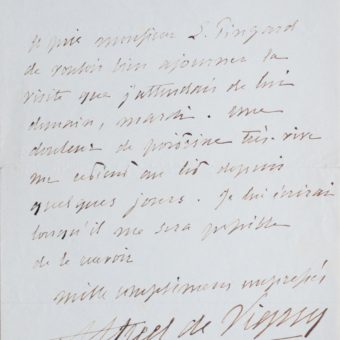 Je prie monsieur L. Pingard
de vouloir bien ajourner la
visite que j'attendais de lui
demain, mardi. Une
douleur de poitrine très vive
me retient au lit depuis
quelques jours. Je lui écrirai
lorsqu'il me sera possible
de le revoir
mille complimens empressés
Alfred de Vigny